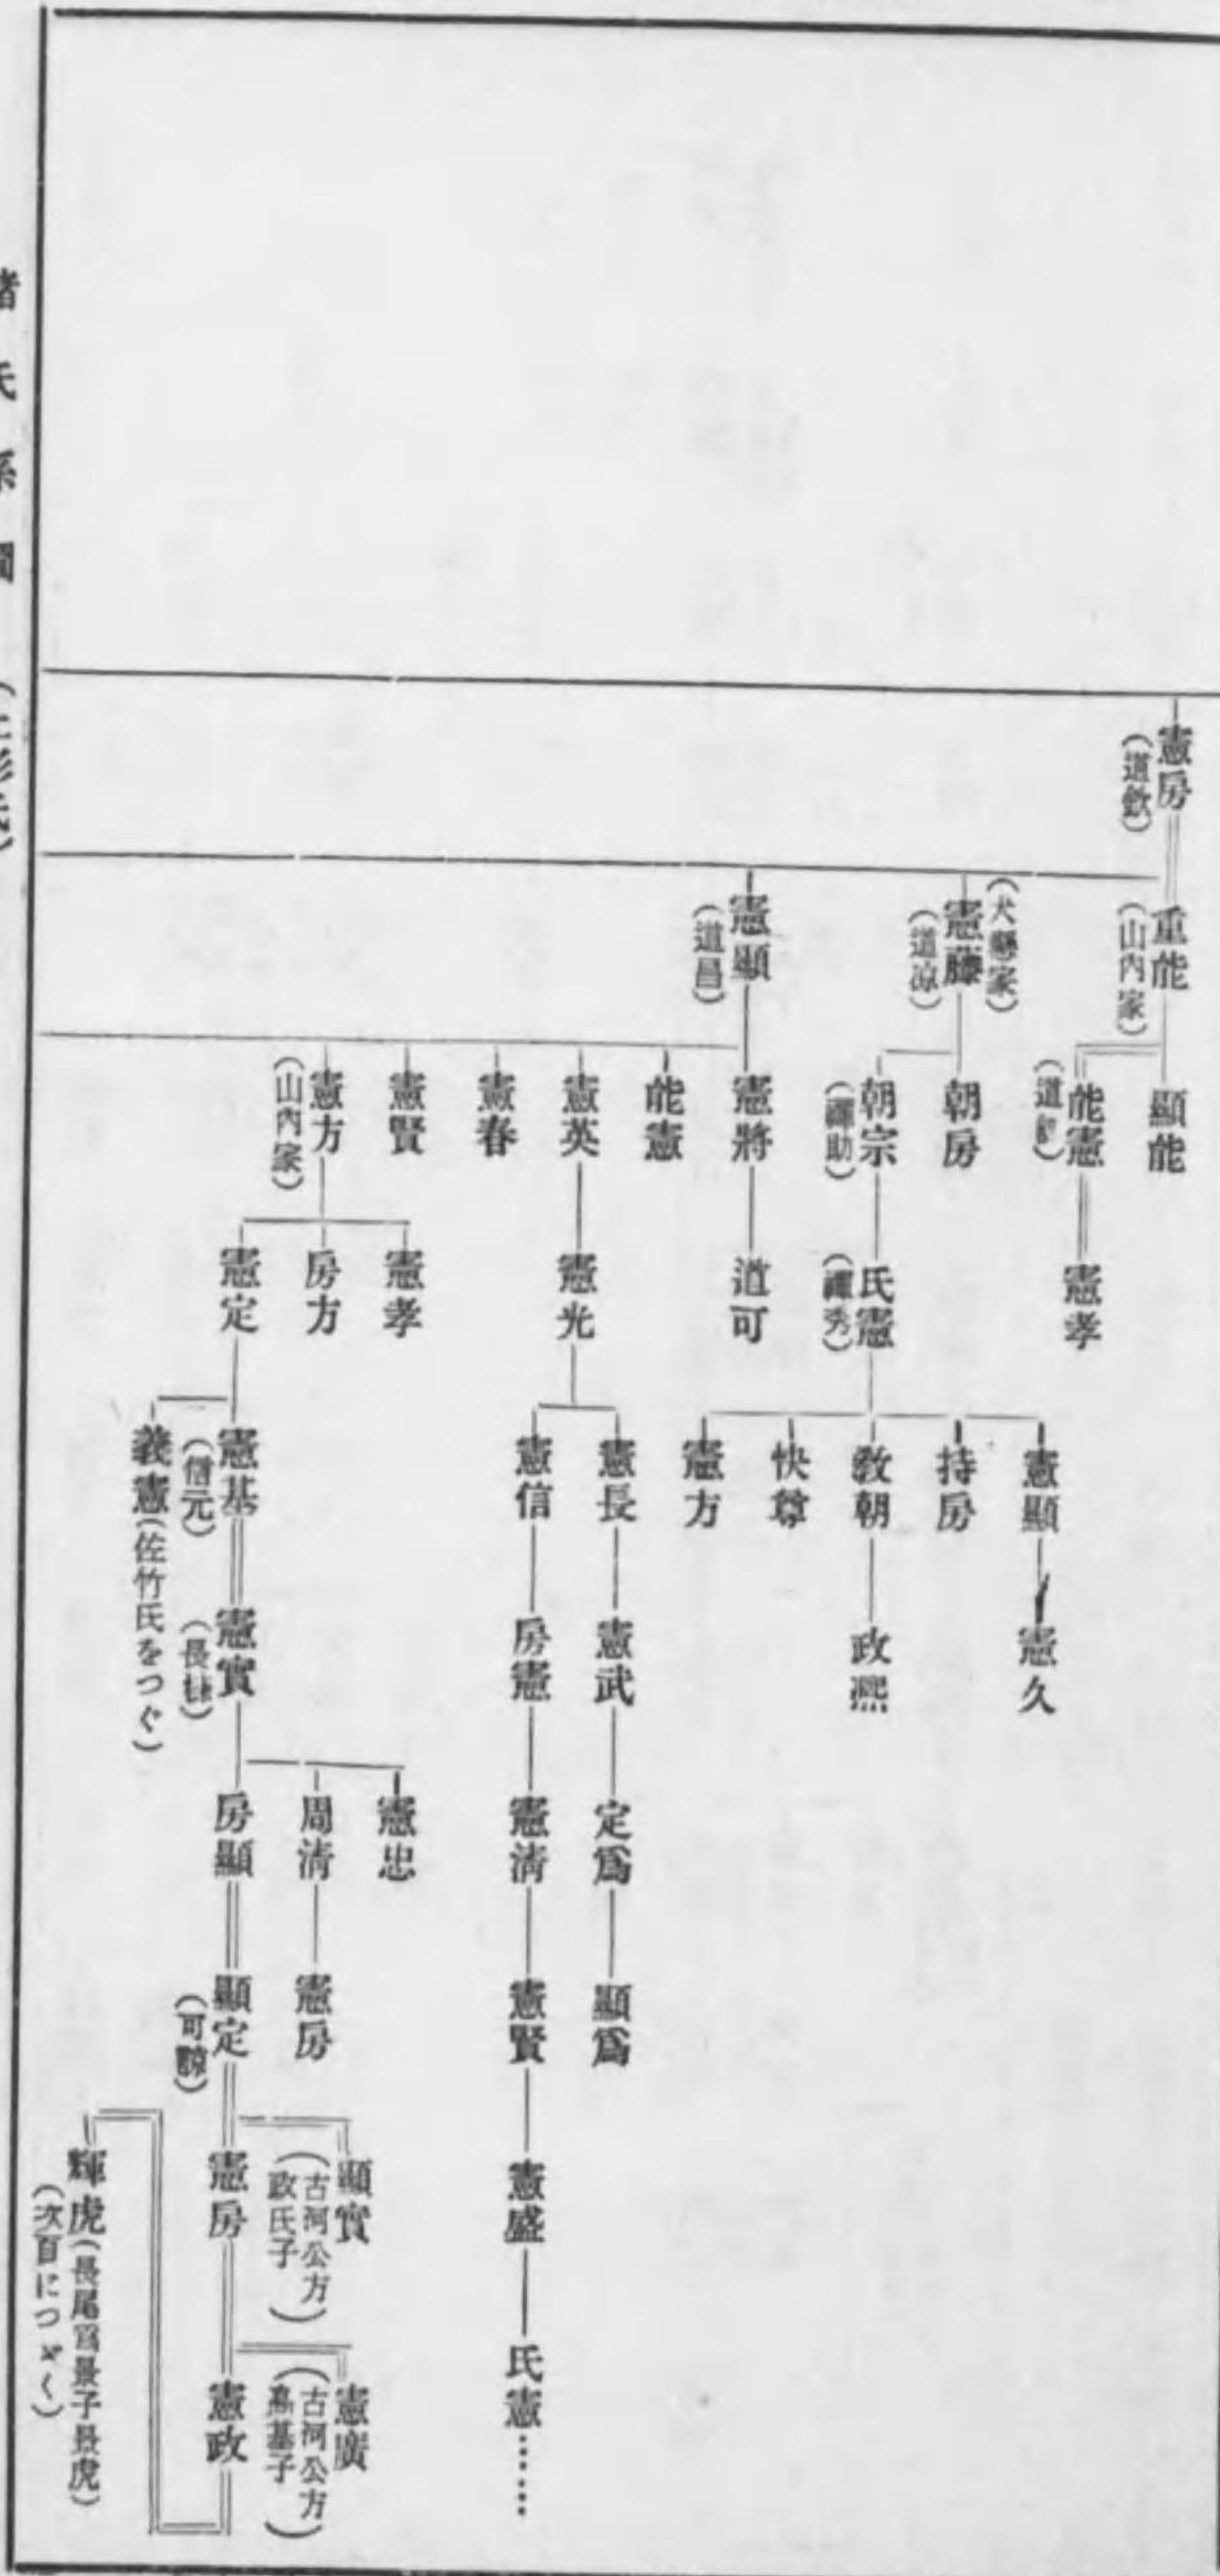 憲房
(道欽)
重能
(山內家)
顯能
能憲
憲孝
(犬懸家)
憲藤
朝房
朝宗
(禪助)
氏憲
(禪秀)
憲顯
憲久
持房
敎朝
政熙
快尊
憲方
憲顯
(道昌)
憲將
道可
能憲
憲英
憲光
憲長
憲武
定爲
顯爲
憲信
房憲
憲淸
憲賢
憲盛
氏憲……
憲春
憲賢
憲方
(山內家)
憲孝
房方
憲定
憲基
(信元)
憲實
憲忠
周淸
憲房
房顯
顯定
(可諄)
顯實
(古河公方
政氏子)
憲房
憲廣
(古河公方
高基子)
憲政
義憲(佐竹氏をつぐ)
輝虎(長尾爲景子景虎)
(次頁につゞく)
諸氏系圖 (上杉氏)